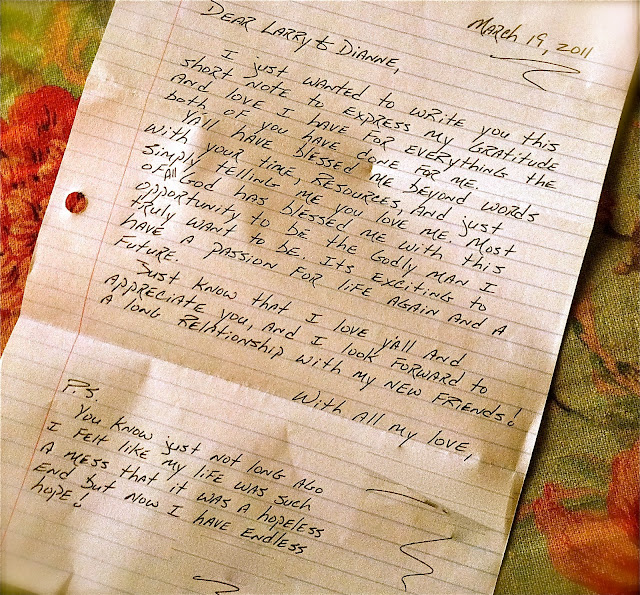 March 19, 2011
Dear Larry & Dianne,
I just wanted to write you this
short note to express my gratitude
and love I have for everything the
both of you have done for me.
Ya'll have blessed me beyond words
with your time, resources, and just
simply telling me you love me. Most
of all God has blessed me with this
opportunity to be the Godly man I
truly want to be. Its exciting to
have a passion for life again and a
future.
Just know that I love ya'll and
appreciate you, and I look forward to
a long relationship with my new friends!
With all my love,
P.S.
You know just not long ago
I felt like my life was such
a mess that it was a hopeless
end but now I have endless
hope!